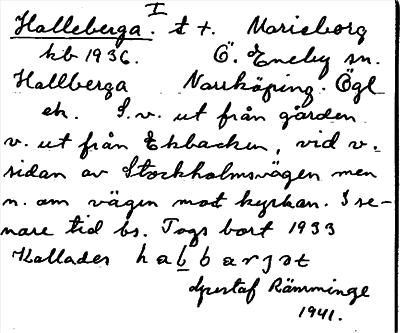 I
Halleberga. t +. Marieborg
kb 1936. Ö. Eneby sn.
Hallberga Norrköping. Ögl
ek. S.v. ut från gården
v. ut från Ekbacken, vid v.
sidan av Stockholmsvägen men
n. om vägen mot kyrkan. I se-
nare tid bs. Togs bort 1933
Kallades
Rämminge
1941.